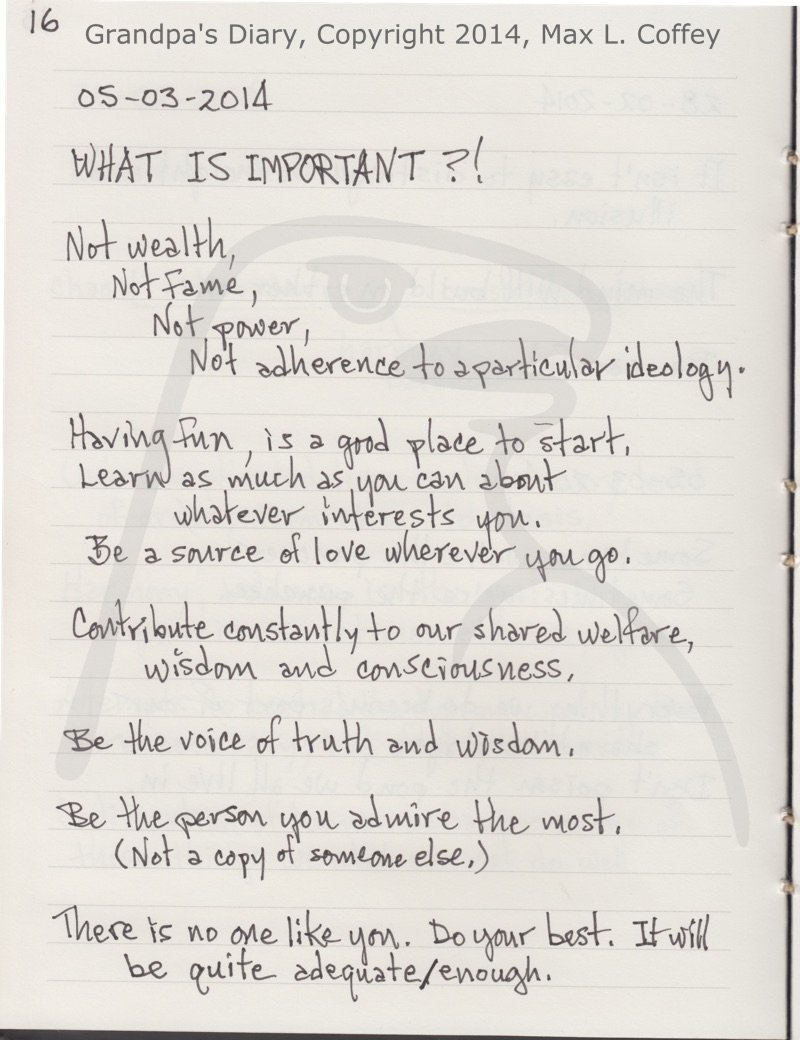 16
Grandpa's Diary, Copyright 2014, Max L. Coffey
05-03-2014
WHAT IS IMPORTANT ?!
Not wealth,
Not fame,
Not power,
Not adherence to a particular ideology.
Having fun, is a good place to start.
Learn as much as you can about
whatever interests you.
Be a source of love wherever you go.
Contribute constantly to our shared welfare,
wisdom and consciousness.
Be the voice of truth and wisdom.
Be the person you admire the most.
(Not a copy of someone else.)
There is no one like you. Do your best. It will
be quite adequate/enough.